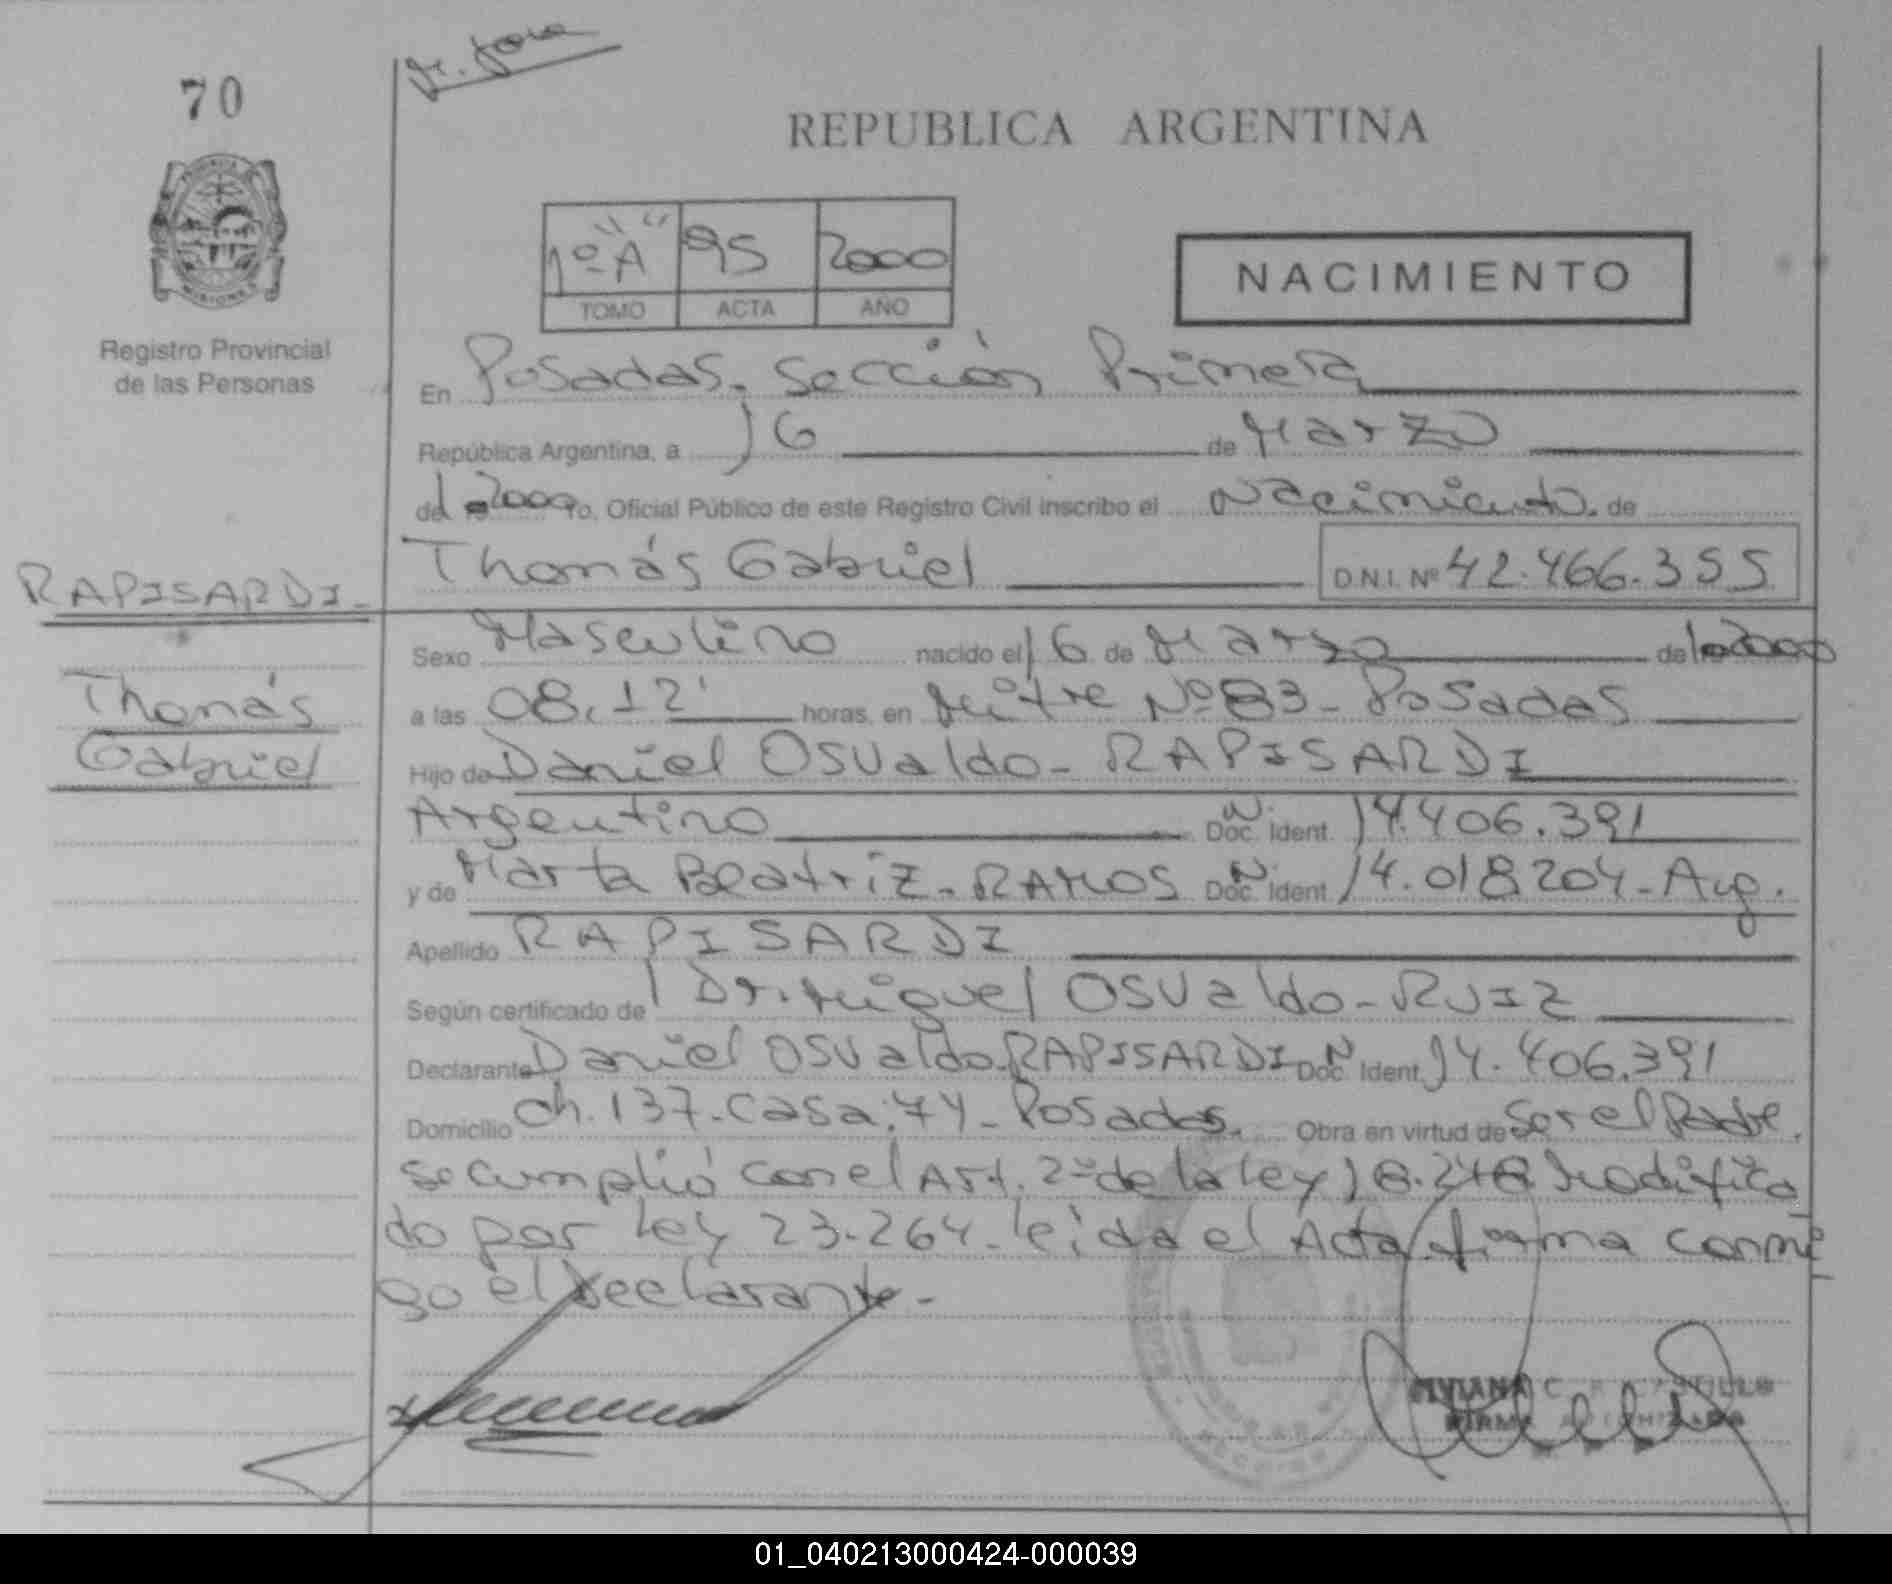 70
REPUBLICA ARGENTINA
1º "A" 95 2000
TOMO ACTA AÑO
NACIMIENTO
Registro Provincial
de las Personas
En Posadas, Sección Primera
República Argentina, a 16 de Marzo
del 2000 Yo, Oficial Público de este Registro Civil inscribo el Nacimiento. de
Thomás Gabriel D.N.I. Nº 42.466.355
RAPISARDI-
Thomás
Gabriel
Sexo Masculino nacido el 16 de Marzo del 2000
a las 08,12' horas, en Mitre Nº 83- Posadas
Hijo de Daniel Osvaldo- RAPISARDI
Argentino Doc. Ident. N. 14.406.391
y de Marta Beatriz- RAMOS Doc. Ident. N. 14.018204-Arg.
Apellido RAPISARDI
Según certificado de Dr. Miguel Osvaldo- RUIZ
Declarante Daniel Osvaldo RAPISARDI Doc. Ident. N 14.406.391
Domicilio Ch. 137- Casa: 74- Posadas. Obra en virtud de Ser el Padre.
se cumplió con el Art. 2º de la Ley 18.248 Modifica
do por Ley 23.264- leída el Acta firma conmi
go el Declarante-
VIVIANA C. R. CASTILLO
FIRMA AUTORIZADA
01_040213000424-000039